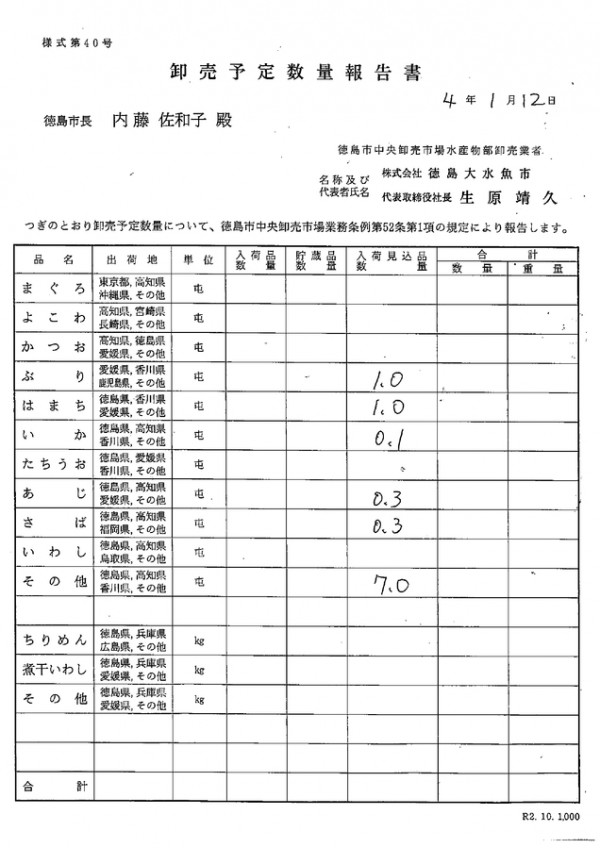 様式第40号
卸売予定数量報告書
4年1月12日
徳島市長 内藤 佐和子 殿
徳島市中央卸売市場水産物部卸売業者
名称及び 株式会社 徳島大水魚市
代表者氏名 代表取締役社長 生原靖久
つぎのとおり卸売予定数量について、徳島市中央卸売市場業務条例第52条第1項の規定により報告します。
品名 出荷地 単位 入荷品数量 貯蔵品数量 入荷見込品数量 合計
数量 重量
まぐろ 東京都, 高知県 沖縄県, その他 屯
よこわ 高知県, 宮崎県 長崎県, その他 屯
かつお 高知県, 徳島県 愛媛県, その他 屯
ぶり 愛媛県, 香川県 鹿児島県, その他 屯 1.0
はまち 徳島県, 香川県 愛媛県, その他 屯 1.0
いか 徳島県, 高知県 香川県, その他 屯 0.1
たちうお 徳島県, 愛媛県 香川県, その他 屯
あじ 徳島県, 高知県 愛媛県, その他 屯 0.3
さば 徳島県, 高知県 福岡県, その他 屯 0.3
いわし 徳島県, 高知県 鳥取県, その他
その他 徳島県, 高知県 香川県, その他 屯 7.0
ちりめん 徳島県, 兵庫県 広島県, その他 kg
煮干いわし 徳島県, 兵庫県 愛媛県, その他 kg
その他 徳島県, 兵庫県 愛媛県, その他 kg
合計
R2. 10. 1,000